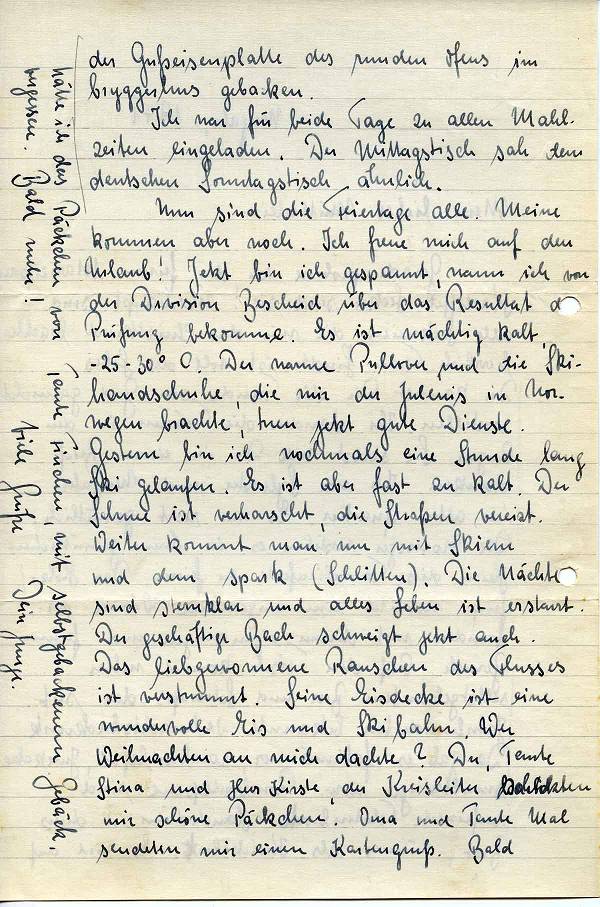 der Gußeisenplatte des runden Ofens im
bryggerhus gebacken.
Ich war für beide Tage zu allen Mahl-
zeiten eingeladen. Der Mittagstisch sah dem
deutschen Sonntagstisch ähnlich.
Nun sind die Feiertage alle. Meine
kommen aber noch. Ich freue mich auf den
Urlaub! Jetzt bin ich gespannt, wann ich von
der Division Bescheid über das Resultat d
Prüfung bekomme. Es ist mächtig kalt,
-25-30° C. Der warme Pullover und die Ski-
handschuhe, die mir der Julenis in Nor-
wegen brachte, tuen jetzt gute Dienste.
Gestern bin ich nochmals eine Stunde lang
Ski gelaufen. Es ist aber fast zu kalt. Der
Schnee ist verharscht, die Straßen vereist.
Weiter kommt man nur mit Skiern
und dem spark (Schlitten). Die Nächte
sind sternklar und alles Leben ist erstarrt.
Der geschäftige Bach schweigt jetzt auch.
Das liebgewonnene Rauschen des Flusses
ist verstummt. Seine Eisdecke ist eine
wundervolle Eis und Skibahn. Wer
Weihnachten an mich dachte? Du, Tante
Stina und Herr Kirste, der Kreisleiter schickten
mir schöne Päckchen. Oma und Tante Mal
sendeten mir einen Kartengruß. Bald
hätte ich das Päckchen von Tante Finchen, mit selbstgebackenem Gebäck,
vergessen. Bald mehr! Viele Grüße Dein Junge.